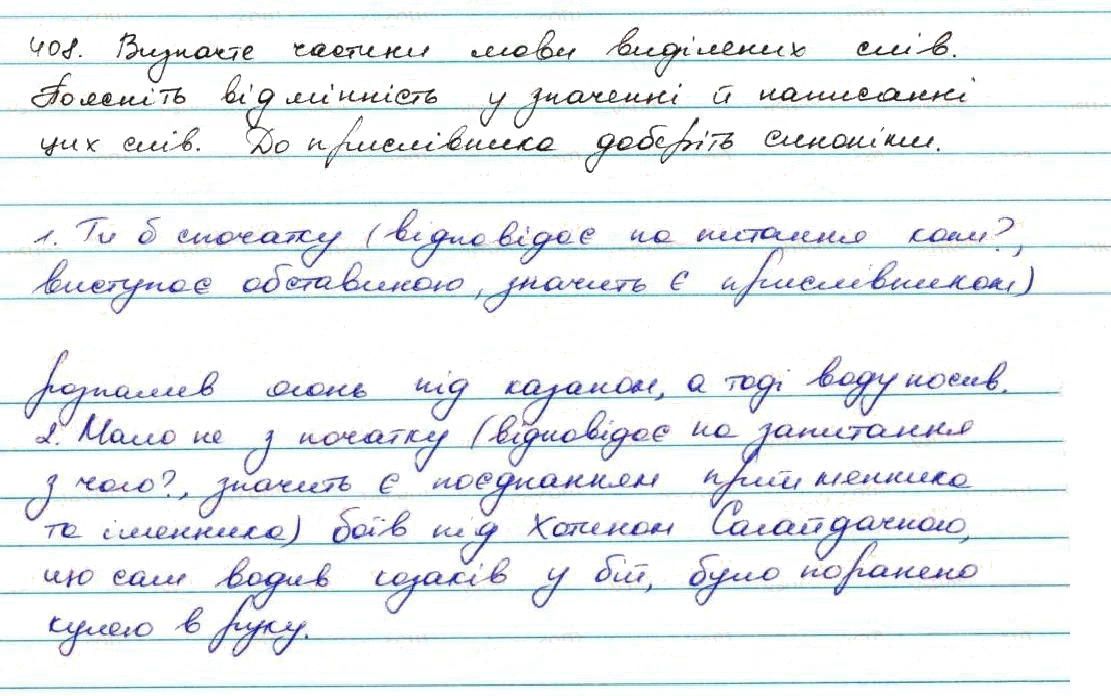 408. Визначте частини мови виділених слів.
Поясніть відмінність у значенні й написанні
цих слів. До прислівника доберіть синоніми.
1. Ти б спочатку (відповідає на питання коли?,
виступає обставиною, значить є прислівником)
розпалив огонь під казаном, а тоді воду носив.
2. Мало не з початку (відповідає на запитання
з чого?, значить є поєднанням прийменника
та іменника) боїв під Хотином Сагайдачного,
що сам водив козаків у бій, було поранено
кулею в руку.